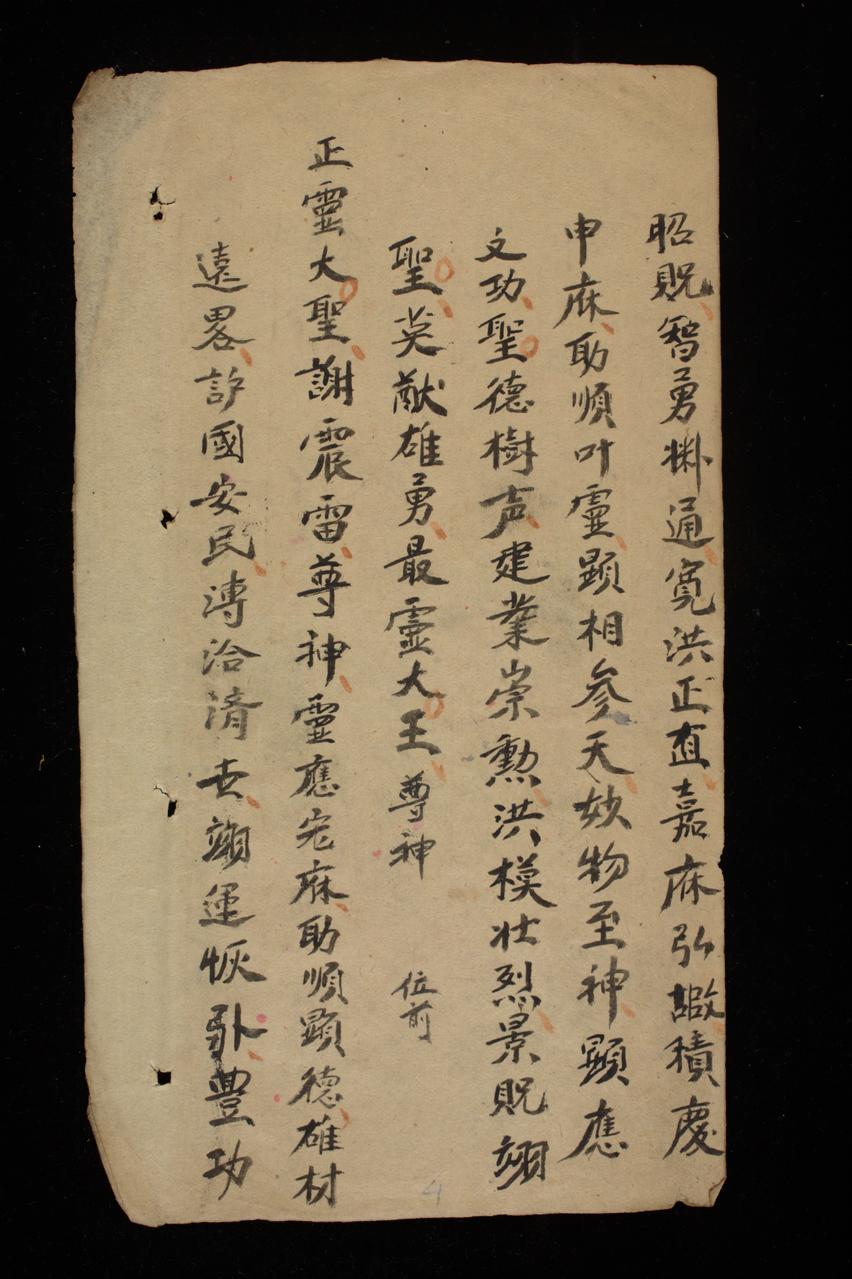 昭貺智勇淋通寬洪正直嘉庥弘謨積慶
申庥助順叶靈顕相参天妙物至神顕應
文功聖德樹声建業崇勲洪模壮烈景貺翊
聖英猷雄勇最靈大王尊神 位前
正靈大聖謝震雷尊神靈應宏庥助順顕德雄材
遠畧訏國安民溥洽清世翊運恢弘豊功
4